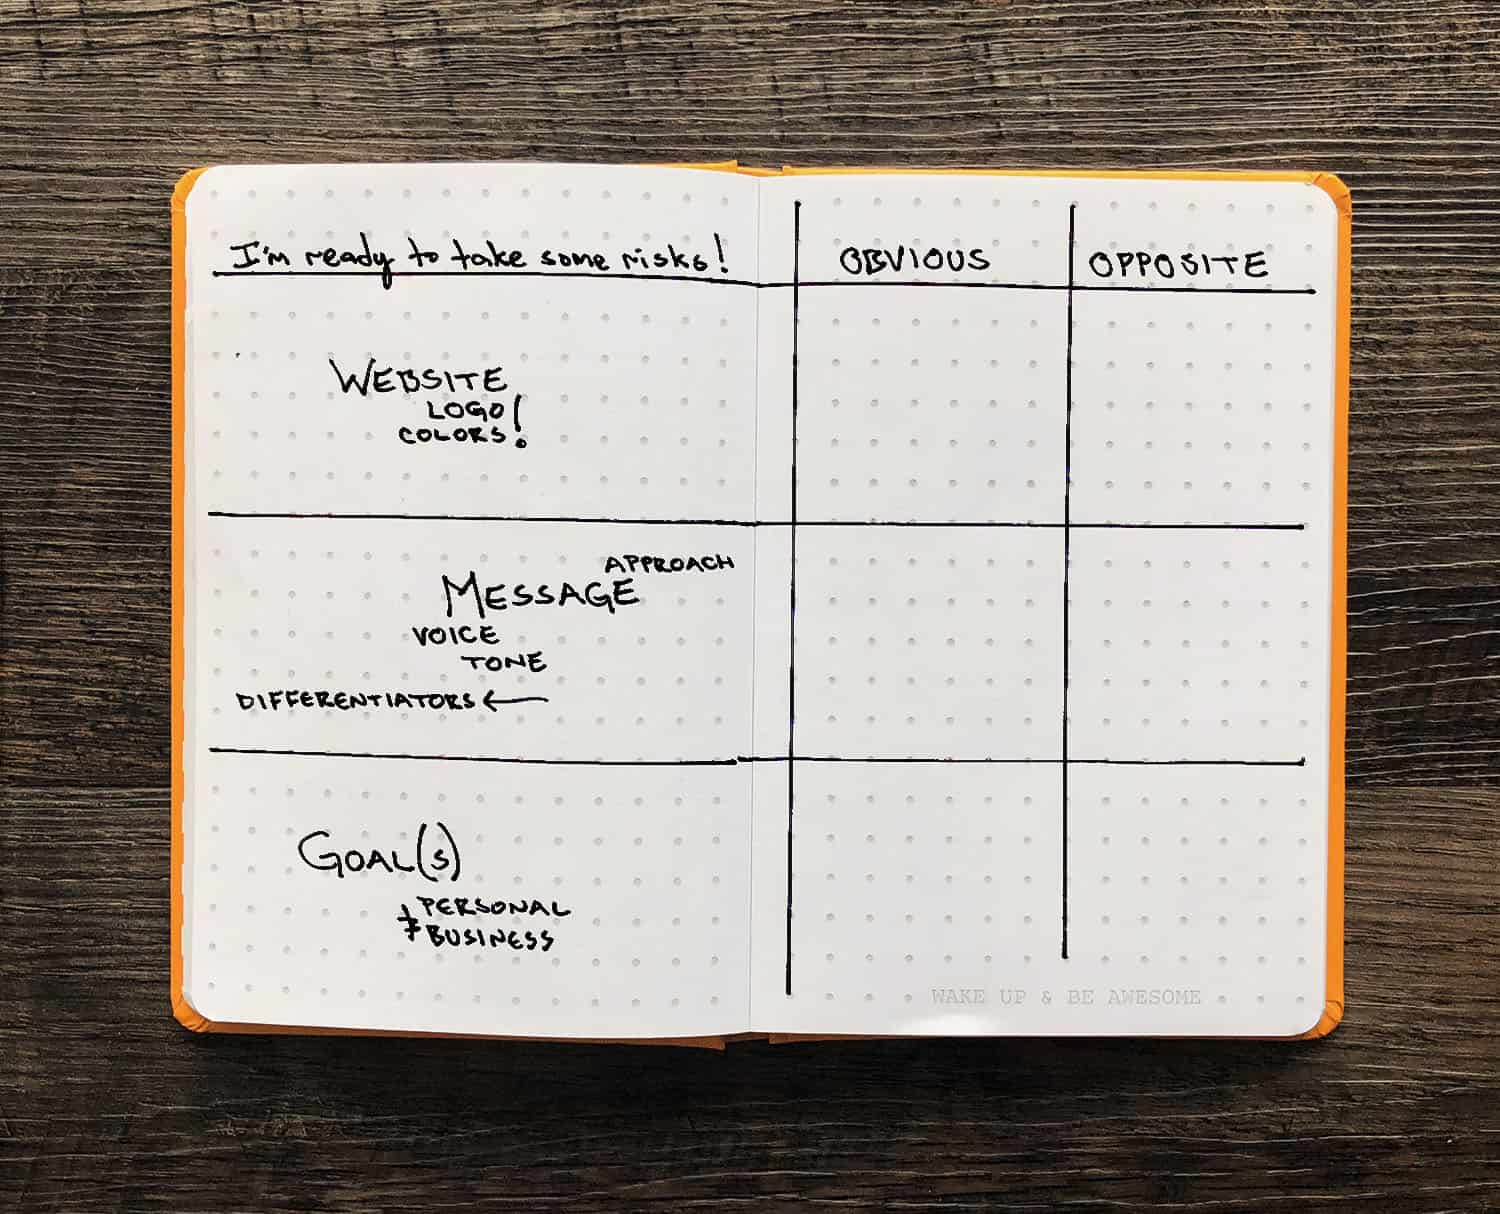 I'm ready to take some risks!
OBVIOUS
OPPOSITE
WEBSITE
LOGO
COLORS!
APPROACH
MESSAGE
VOICE
TONE
DIFFERENTIATORS ←
GOAL(S)
PERSONAL
+ BUSINESS
WAKE UP & BE AWESOME